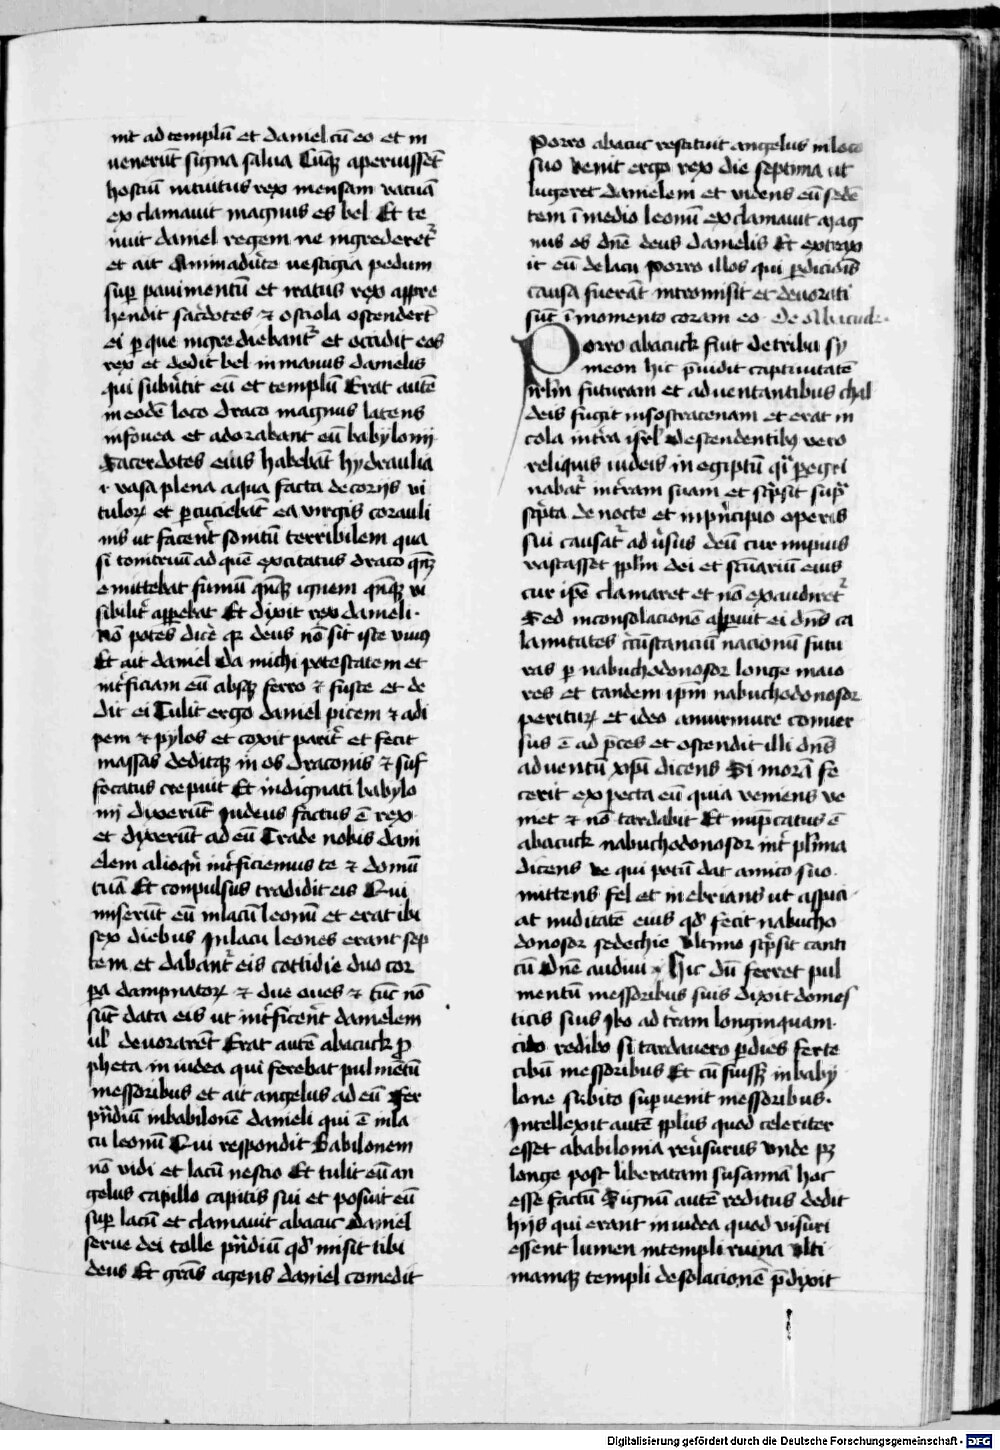 nit ad templū et daniel cū eo et in
venerūt signa salva Cūqꝫ aperuisset
hostiū intuitus rex mensam vacuā
exclamavit magnus es bel Et te
nuit daniel regem ne ingrederet᷑
et ait Animadv̄te vestigia pedum
sup pavimentū et iratus rex appre
hendit sac̄dotes ⁊ ostiola ostendert̄
ei p que ingrediebant᷑ et occidit eos
rex et dedit bel in manus danielis
qui subv̄tit eū et templū Erat autē
in eodē loco draco magnus latens
in fovea et adorabant eū babylonij
Sacerdotes eius habebāt hydraulia
.i. vasa plena aqua facta de corijs vi
tuloꝝ et pcuciebāt ea virgis corauli
nis ut facer̄t sonitū terribilem qua
si tonitruū ad quē excitatus draco qn̄qꝫ
emittebat fumū qn̄qꝫ ignem qn̄qꝫ vi
sibilit᷑ apperebat Et dixit rex danieli
Nō potes dice᷑ qꝛ deus nō sit iste vivꝯ
Et ait daniel Da michi potestatem et
int᷑ficiam eū absqꝫ ferro ⁊ fuste et de
dit ei Tulit ergo daniel picem ⁊ adi
pem ⁊ pylos et coxit parit᷑ et fecit
massas deditqꝫ in os draconis ⁊ suf
focatus crepuit Et indignati babylo
nij dixerūt Judeus factus ē rex
et dixerūt ad eū Trade nobis dani
elem alioqn̄ int᷑ficiemus te ⁊ domū
tuā Et compulsus tradidit eis Qui
miserūt eū in lacū leonū et erat ibi
sex diebus In lacu leones erant sep
tem et dabant᷑ eis cottidie duo cor
pa dampnatoꝝ ⁊ due oues ⁊ tūc nō
sūt data eis ut int᷑ficer̄t danielem
ul̄ devorarēt Erat autē abacuck p̄
pheta in iudea qui ferebat pulmētū
messoribus et ait angelus ad eū Fer
pn̄diū in babilonē danieli qui ē in la
cu leonū Cui respondit Babilonem
nō vidi et lacū nescio Et tulit eū an
gelus capillo capitis sui et posuit eū
sup lacū et clamavit abacuc Daniel
serve dei tolle pn̄diū qd̄ misit tibi
deus Et grās agens daniel comedit
Porro abacuc restituit angelus in loco
suo Venit ergo rex die septima ut
lugeret danielem et videns eū sedē
tem ī medio leonū exclamavit Mag
nus es dn̄e deus danielis Et extrax
it eū de lacu Porro illos qui pdicionis
causa fuerāt intromisit et devorati
sūt ī momento coram eo De Abacuck
Porro abacuck fuit de tribu sy
meon hic p̄vidit captivitatē
irl̄m futuram et adventantibus chal
deis fugit in sostracenam et erat in
cola int᷑ra isrl̄ Descendentibꝫ vero
reliquis iudeis in egiptū q̄i pegri
nabat᷑ in t᷑ram suam et sc̄psit sup̄
sc̄pta de nocte et in pn̄cipio operis
sui causat᷑ adv̄sus deū cur impius
vastasset ppl̄m dei et sc̄uariū eius
cur ipē clamaret et nō exaudiret᷑
Sed in consolacionē apparuit ei dn̄s ca
lamitates circūstanciū nacionū futu
ras p nabuchodonosor longe maio
res et tandem ipm̄ nabuchodonosor
perituꝝ et ideo a murmure conver
sus ē ad p̄ces et ostendit illi dn̄s
adventū xp̄i dicens Si morā fe
cerit expecta eū quia veniens ve
niet ⁊ nō tardabit Et imp̄catus ē
abacuck nabuchodonosor int᷑ pl̄ima
dicens ve qui potū dat amico suo
mittens fel et inebrians ut aspici
at nuditatē eius qd̄ fecit nabucho
donosor sedechie Ultimo sc̄psit canti
cū Dn̄e audivi Hic dū ferret pul
mentū messoribus suis dixit domes
ticis suis Ibo ad t᷑ram longinquam
cito redibo si tardavero pdies ferte
cibū messoribus Et cū fuissꝫ in baby
lone subito supvenit messoribus
Intellexit autē ppl̄us quod celeriter
esset a babilonia rev̄surus Unde pꝫ
longe post liberatam susannā hoc
esse factū Signū autē reditus dedit
hijs qui erant in iudea quod visuri
essent lumen in templi ruina Ulti
mamqꝫ templi desolacionē p̄dixit
Digitalisierung gefördert durch die Deutsche Forschungsgemeinschaft - DFG